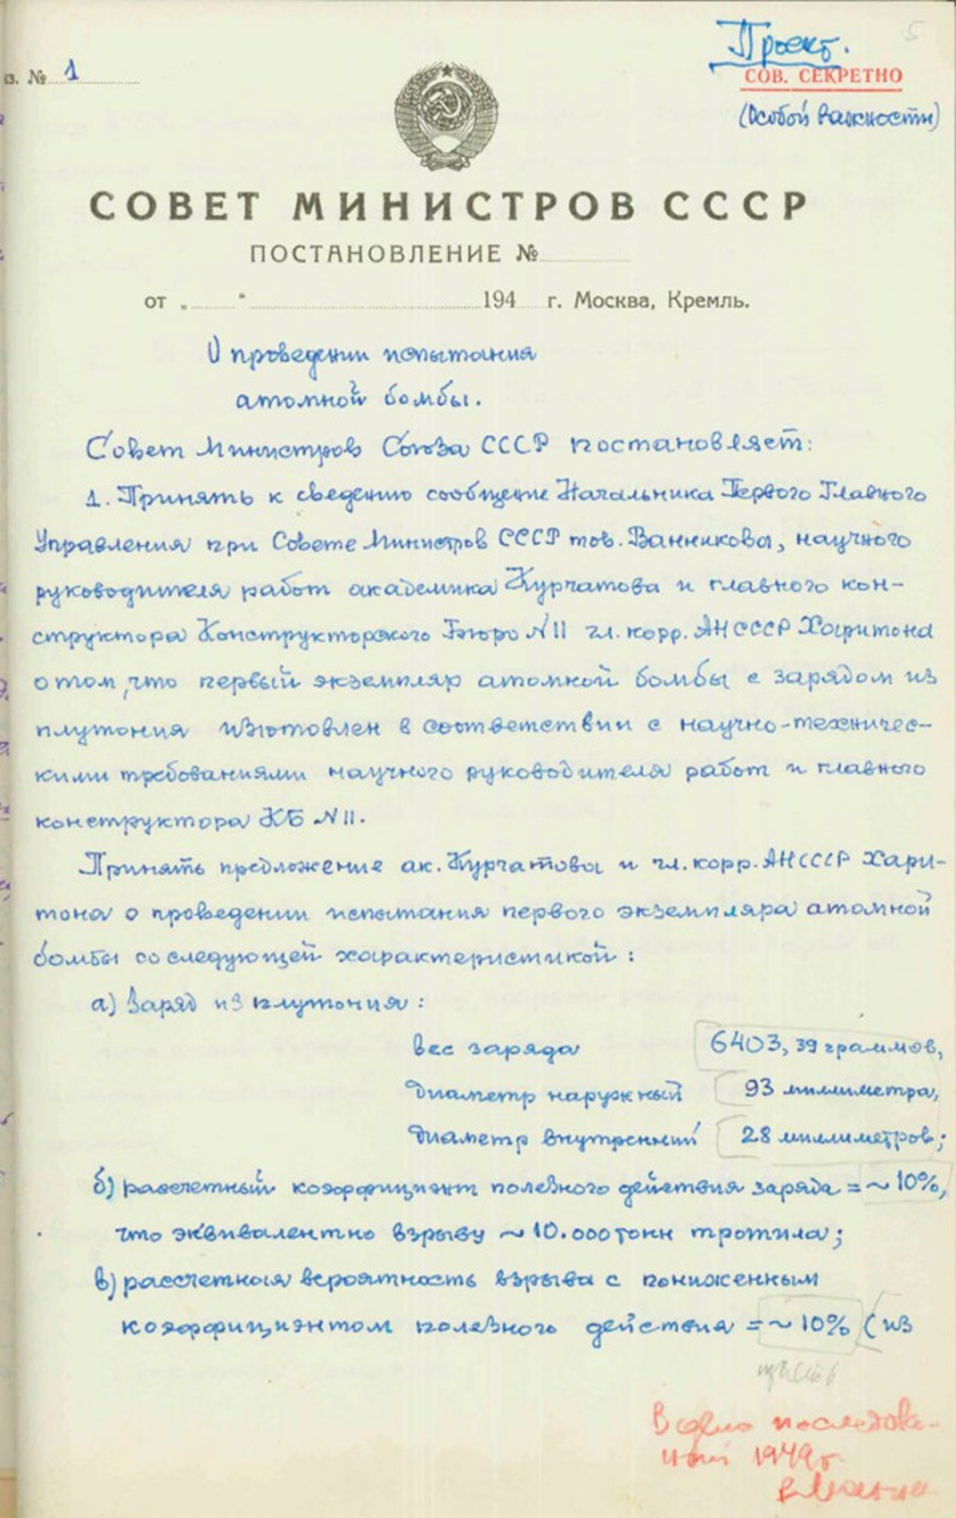 Проект.
5
з. № 1
СОВ. СЕКРЕТНО
(Особой важности)
СОВЕТ МИНИСТРОВ СССР
ПОСТАНОВЛЕНИЕ №
от „ “ 194 г. Москва, Кремль.
О проведении испытания
атомной бомбы.
Совет Министров Союза ССР постановляет:
1. Принять к сведению сообщение Начальника Первого Главного
Управления при Совете Министров СССР тов. Ванникова, научного
руководителя работ академика Курчатова и главного кон-
структора Конструкторского Бюро N11 чл. корр. АН СССР Харитона
о том, что первый экземпляр атомной бомбы с зарядом из
плутония изготовлен в соответствии с научно-техничес-
кими требованиями научного руководителя работ и главного
конструктора КБ N11.
Принять предложение ак. Курчатова и чл. корр. АН СССР Хари-
тона о проведении испытания первого экземпляра атомной
бомбы со следующей характеристикой:
а) Заряд из плутония:
вес заряда 6403,39 граммов,
диаметр наружный 93 миллиметра,
диаметр внутренний 28 миллиметров;
б) рассчетный коэффициэнт полезного действия заряда = ~ 10%,
что эквивалентно взрыву ~ 10.000 тонн тротила;
в) рассчетная вероятность взрыва с пониженным
коэффициэнтом полезного действия = ~ 10% (из
1949г.